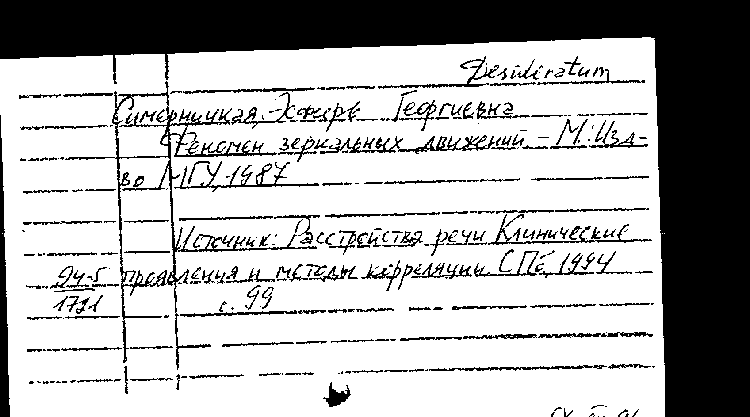 Desideratum
Симерницкая, Эсфирь Георгиевна
Феномен зеркальных движений - М.: Изд-
во МГУ, 1987
Источник: Расстройства речи Клинические
94-5 проявления и методы коррекции СПб, 1994
1791 с. 99